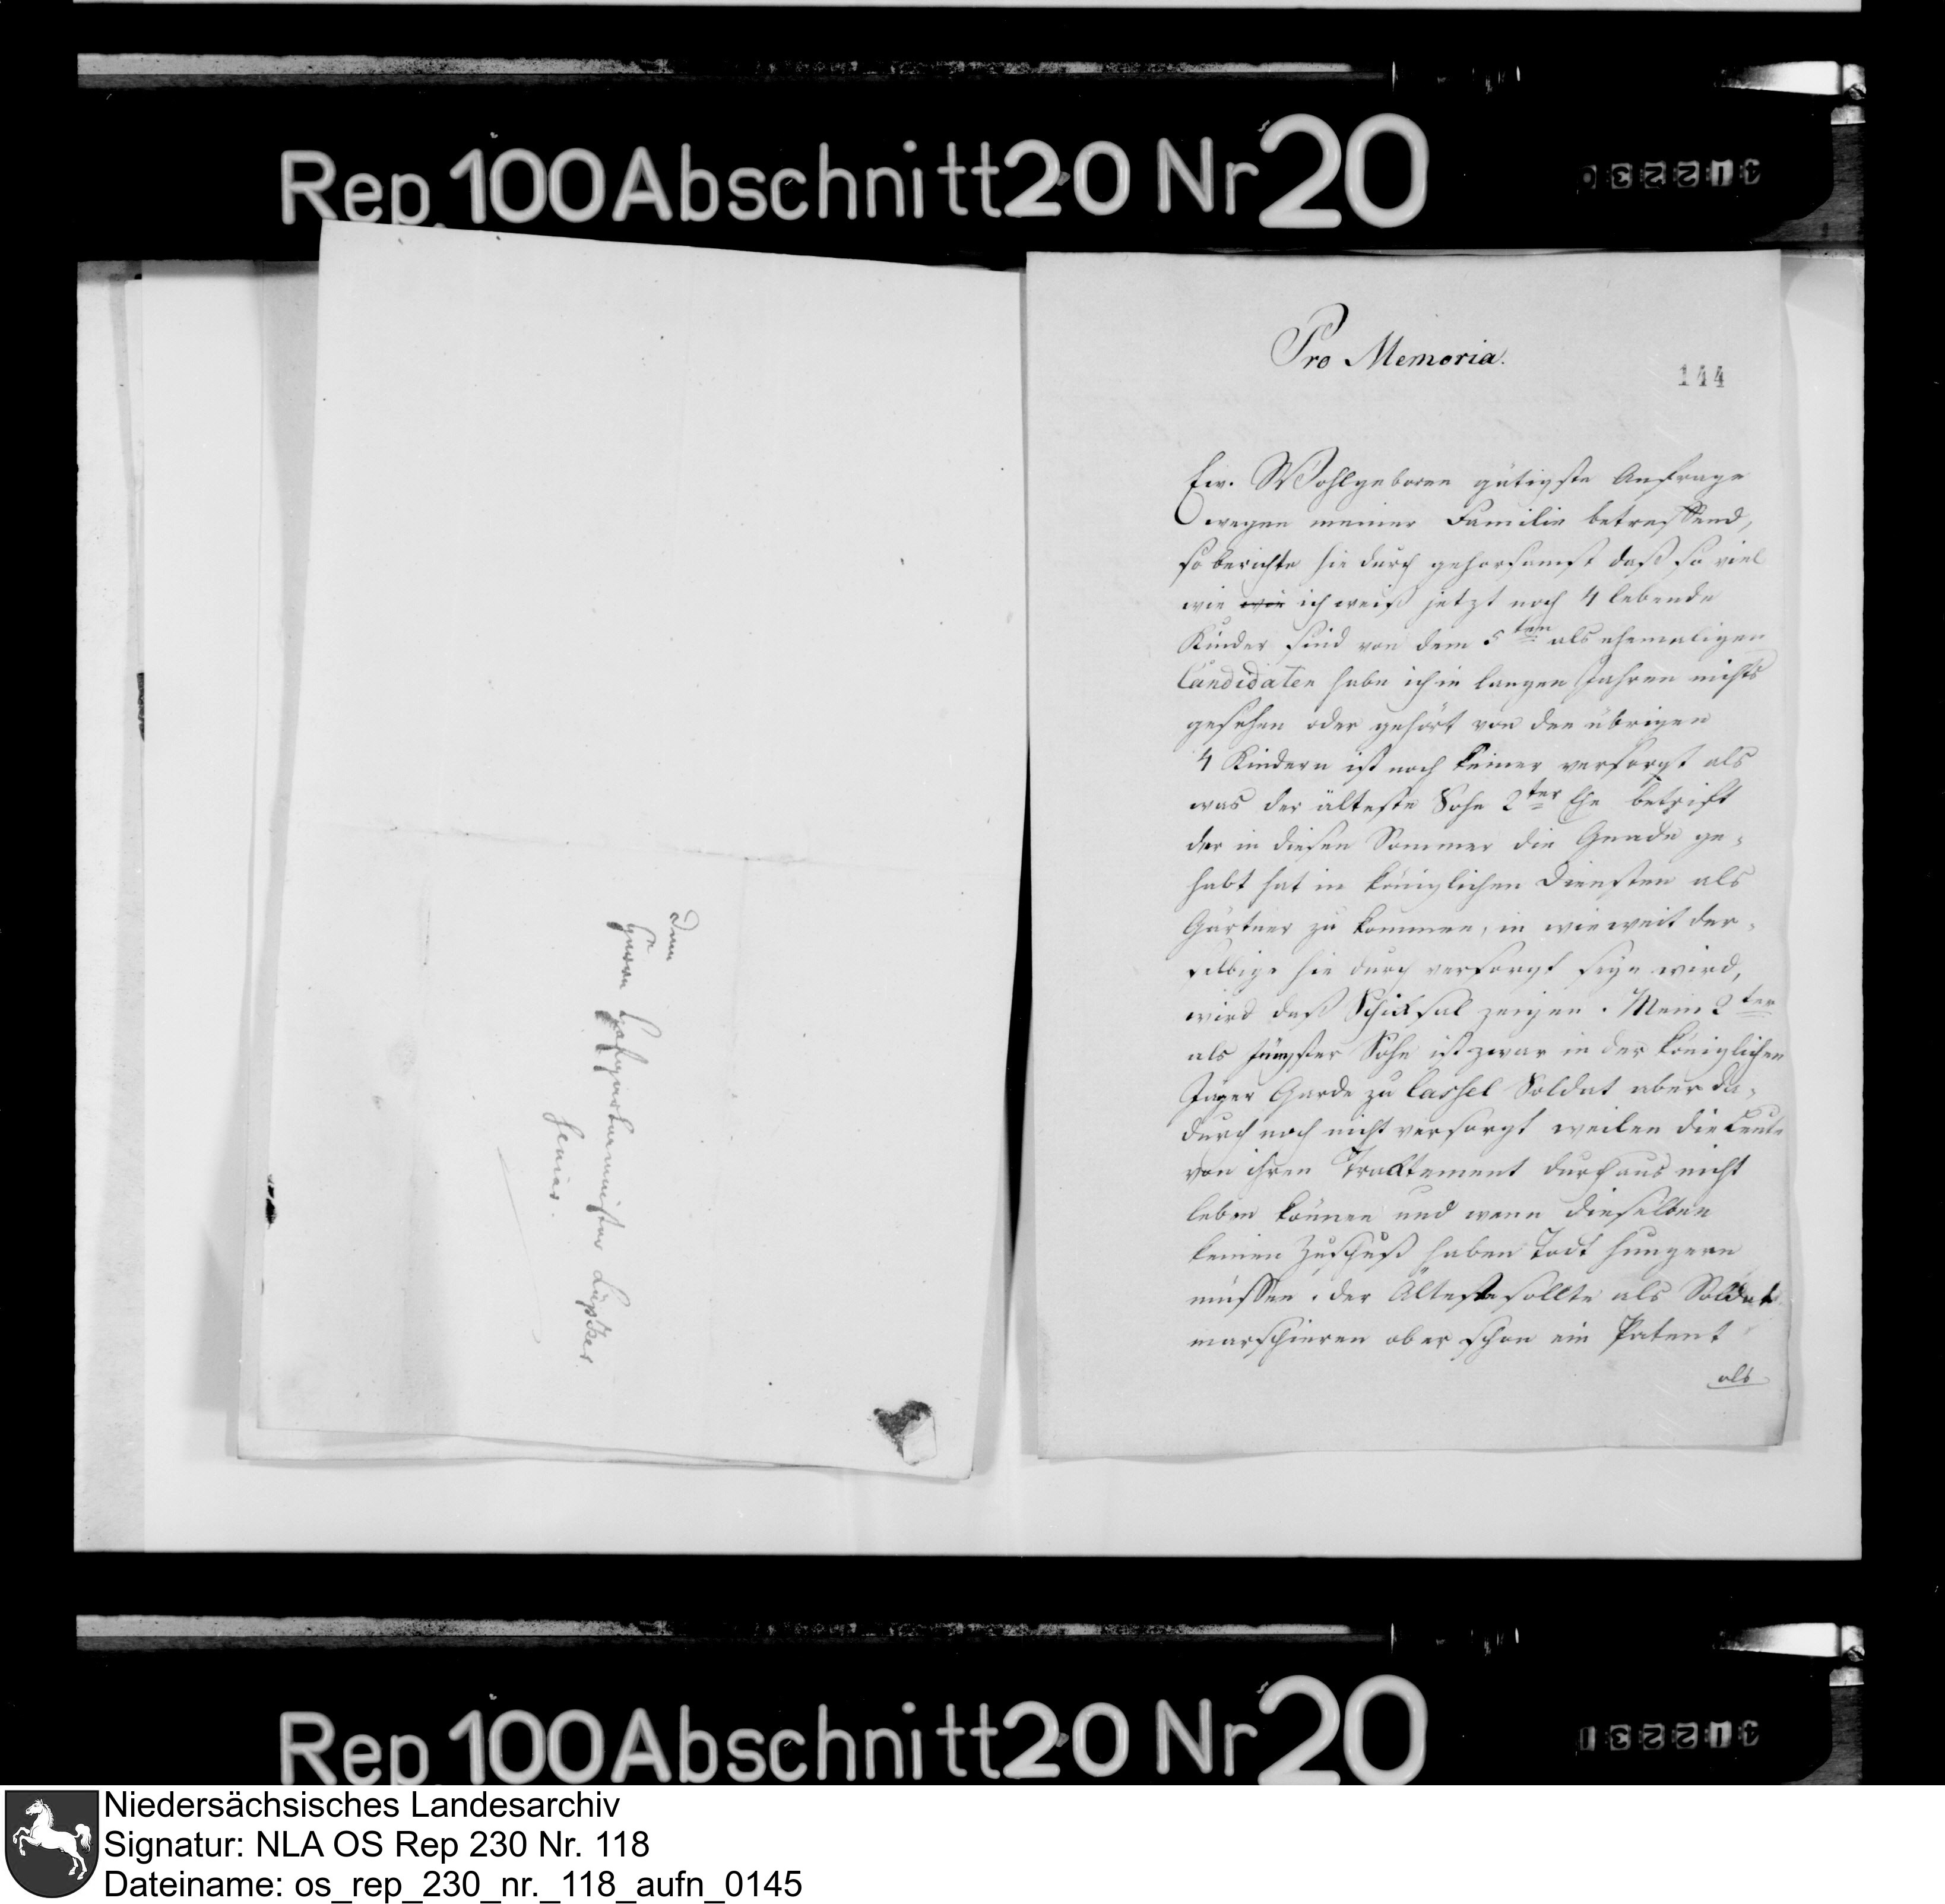 Rep. 100 Abschnitt 20 Nr 20
41223 0
Dem
Herrn Hofquartiermeister Lüpcker
senior.
Pro Memoria.
144
Ew. Wohlgeboren gütigste Anfrage
wegen meiner Familie betreffend,
so berichte hie durch gehorsamst daß so viel
wie wie ich weiß jetzt noch 4 lebende
Kinder sind von dem 5ten als ehemaligen
Candidaten habe ich in langen Jahren nichts
gesehen oder gehört von den übrigen
4 Kindern ist noch keiner versorgt als
was der älteste Sohn 2ter Ehe betrift
der in diesen Sommer die Gnade ge-
habt hat in königlichen Diensten als
Gärtner zu kommen, in wie weit der-
selbige hie durch versorgt seyn wird,
wird daß Schicksal zeigen. Mein 2ter
als Jüngster Sohn ist zwar in der königlichen
Jäger Garde zu Cassel Soldat aber da-
durch noch nicht versorgt weilen die Leute
von ihren Tracktement durchaus nicht
leben können und wenn dieselben
keinen Zuschuß haben Todt hungern
müssen. der Älteste sollte als Soldat
marschieren ob er schon ein Patent
als
Rep 100 Abschnitt 20 Nr 20
41223 1
Niedersächsisches Landesarchiv
Signatur: NLA OS Rep 230 Nr. 118
Dateiname: os_rep_230_nr._118_aufn_0145